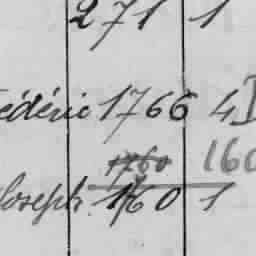 271 1
édéric 1766 4
1760 160
Joseph 1760 1